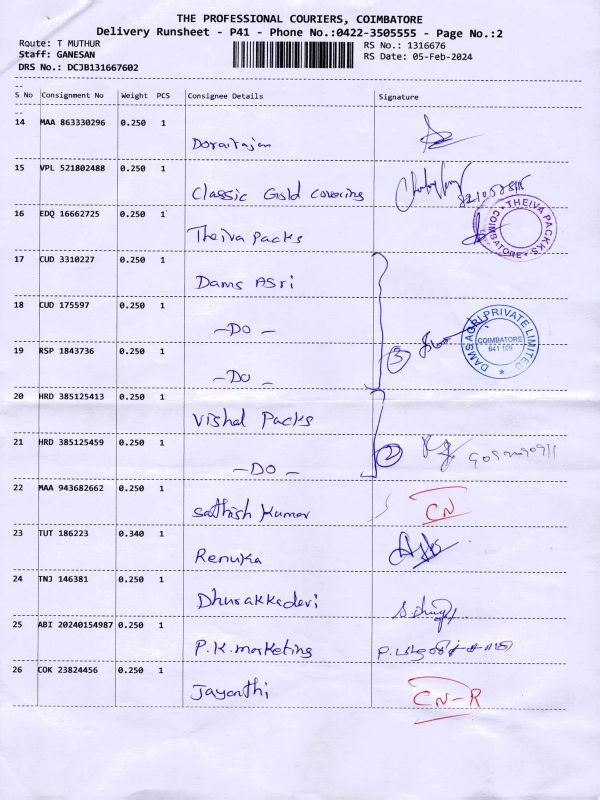 THE PROFESSIONAL COURIERS, COIMBATORE
Delivery Runsheet - P41 - Phone No.:0422-3505555 - Page No.:2
Route: T MUTHUR
RS No.: 1316676
Staff: GANESAN
RS Date: 05-Feb-2024
DRS No.: DCJB131667602
S No Consignment No Weight PCS Consignee Details Signature
14 MAA 863330296 0.250 1
Dorairajan
15 VPL 521802488 0.250 1
Classic Gold covering
16 EDQ 16662725 0.250 1
Theiva Packs
THEIVA PACKS
COIMBATORE
17 CUD 3310227 0.250 1
Dams ASri
18 CUD 175597 0.250 1
-DO-
DAMS AGRI PRIVATE LIMITED
COIMBATORE
641 109
19 RSP 1843736 0.250 1
-DO-
3
20 HRD 385125413 0.250 1
Vishal Packs
21 HRD 385125459 0.250 1
-DO-
2
22 MAA 943682662 0.250 1
Sathish Kumar
CN
23 TUT 186223 0.340 1
Renuka
24 TNJ 146381 0.250 1
Dhurakkadevi
25 ABI 20240154987 0.250 1
P.K.marketing
26 COK 23824456 0.250 1
Jayanthi
CN-R